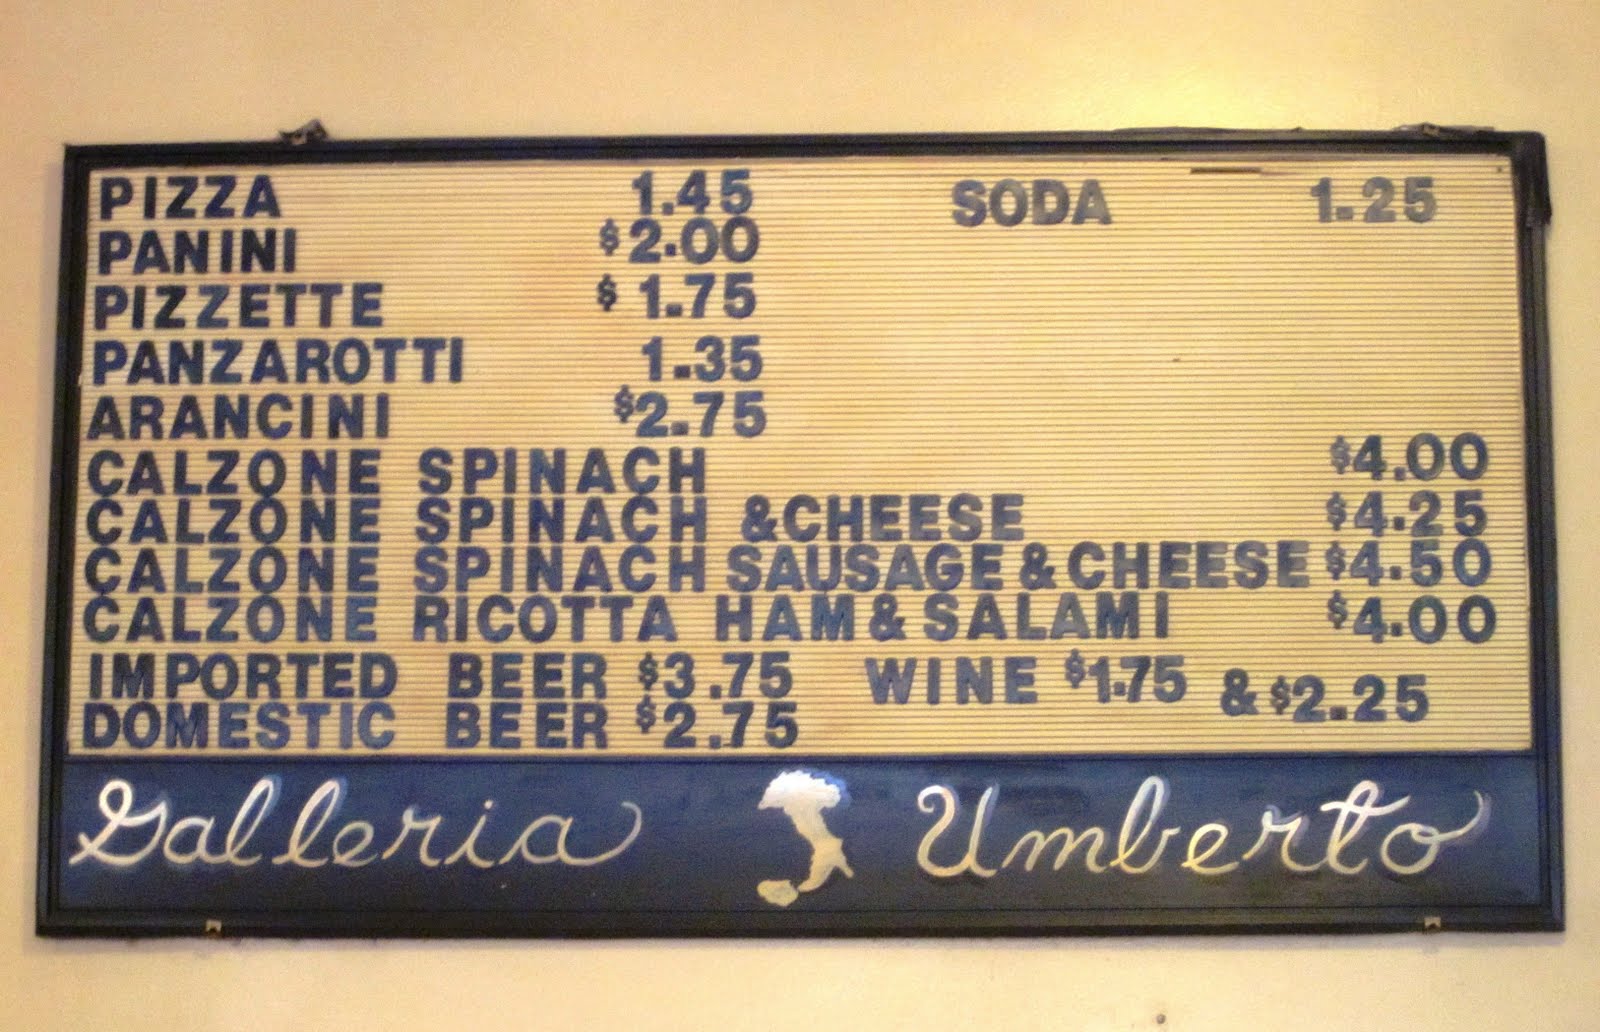 PIZZA 1.45 SODA 1.25
PANINI $2.00
PIZZETTE $1.75
PANZAROTTI 1.35
ARANCINI $2.75
CALZONE SPINACH $4.00
CALZONE SPINACH &CHEESE $4.25
CALZONE SPINACH SAUSAGE & CHEESE $4.50
CALZONE RICOTTA HAM & SALAMI $4.00
IMPORTED BEER $3.75 WINE $1.75 & $2.25
DOMESTIC BEER $2.75
Galleria Umberto